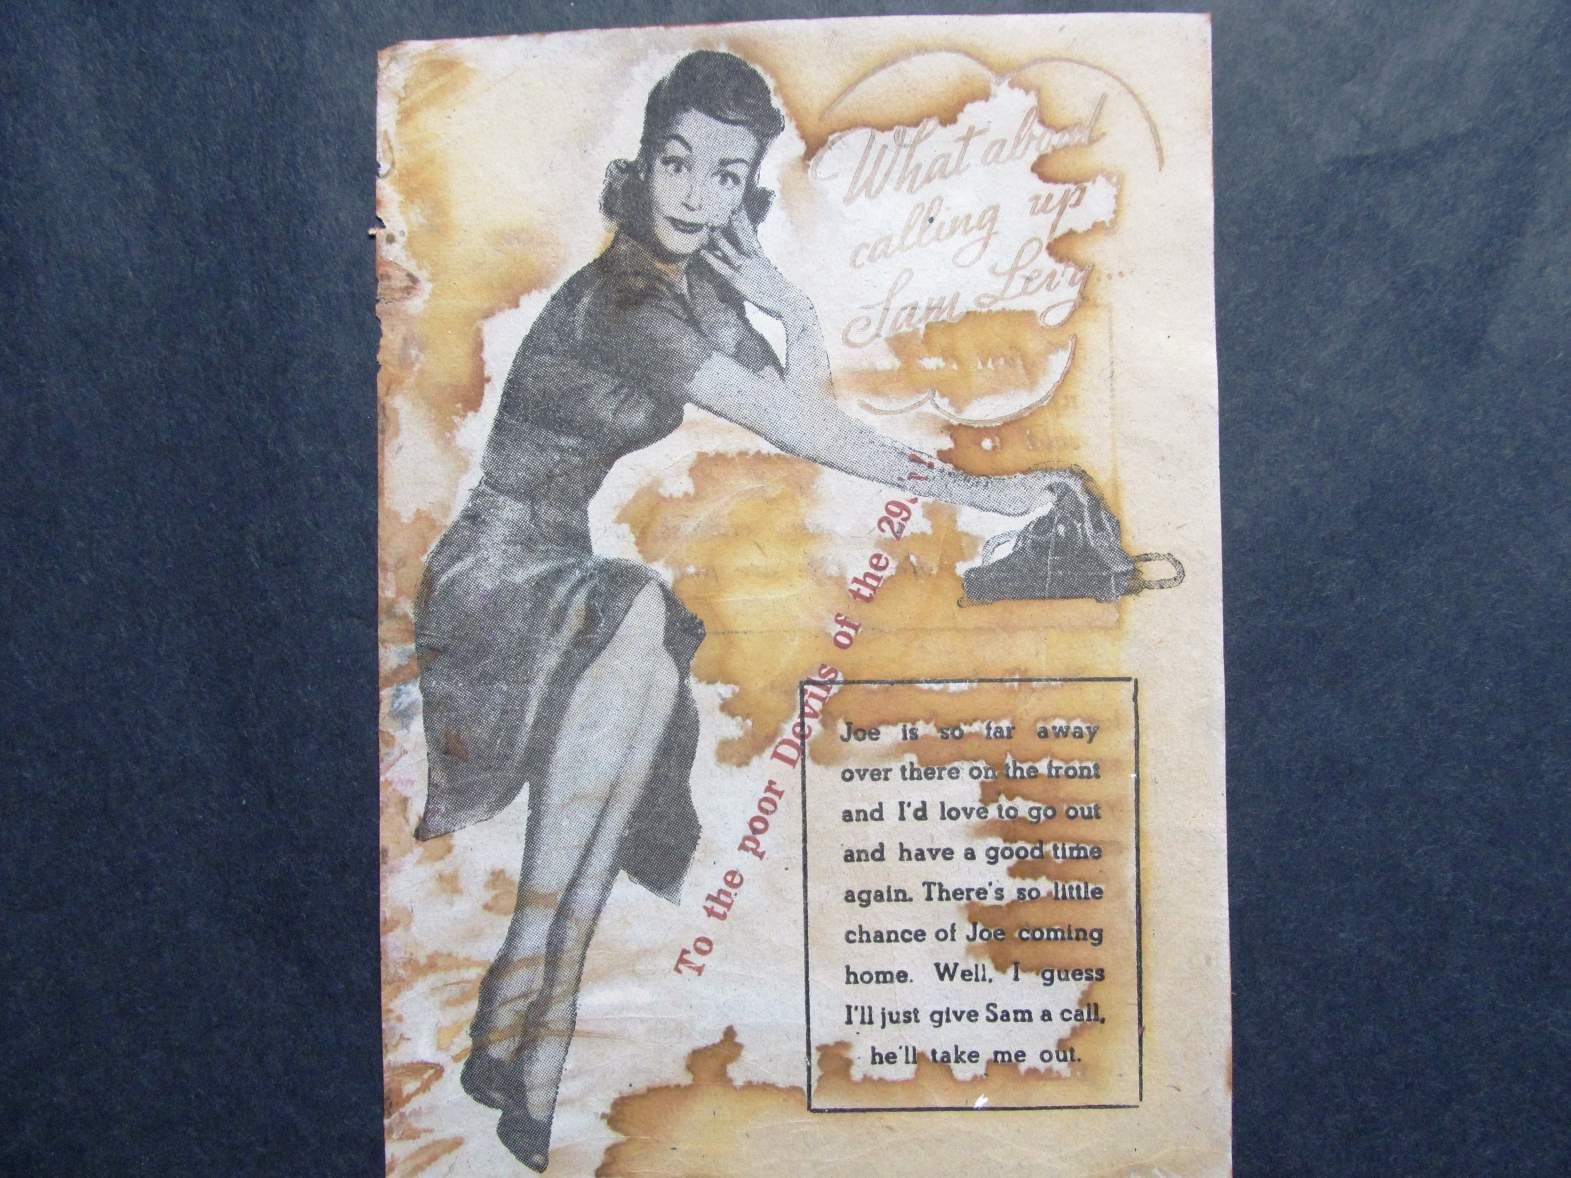 What about
calling up
Sam Levy...
To the poor Devils of the 29...!!
Joe is so far away
over there on the front
and I'd love to go out
and have a good time
again. There's so little
chance of Joe coming
home. Well, I guess
I'll just give Sam a call,
he'll take me out.